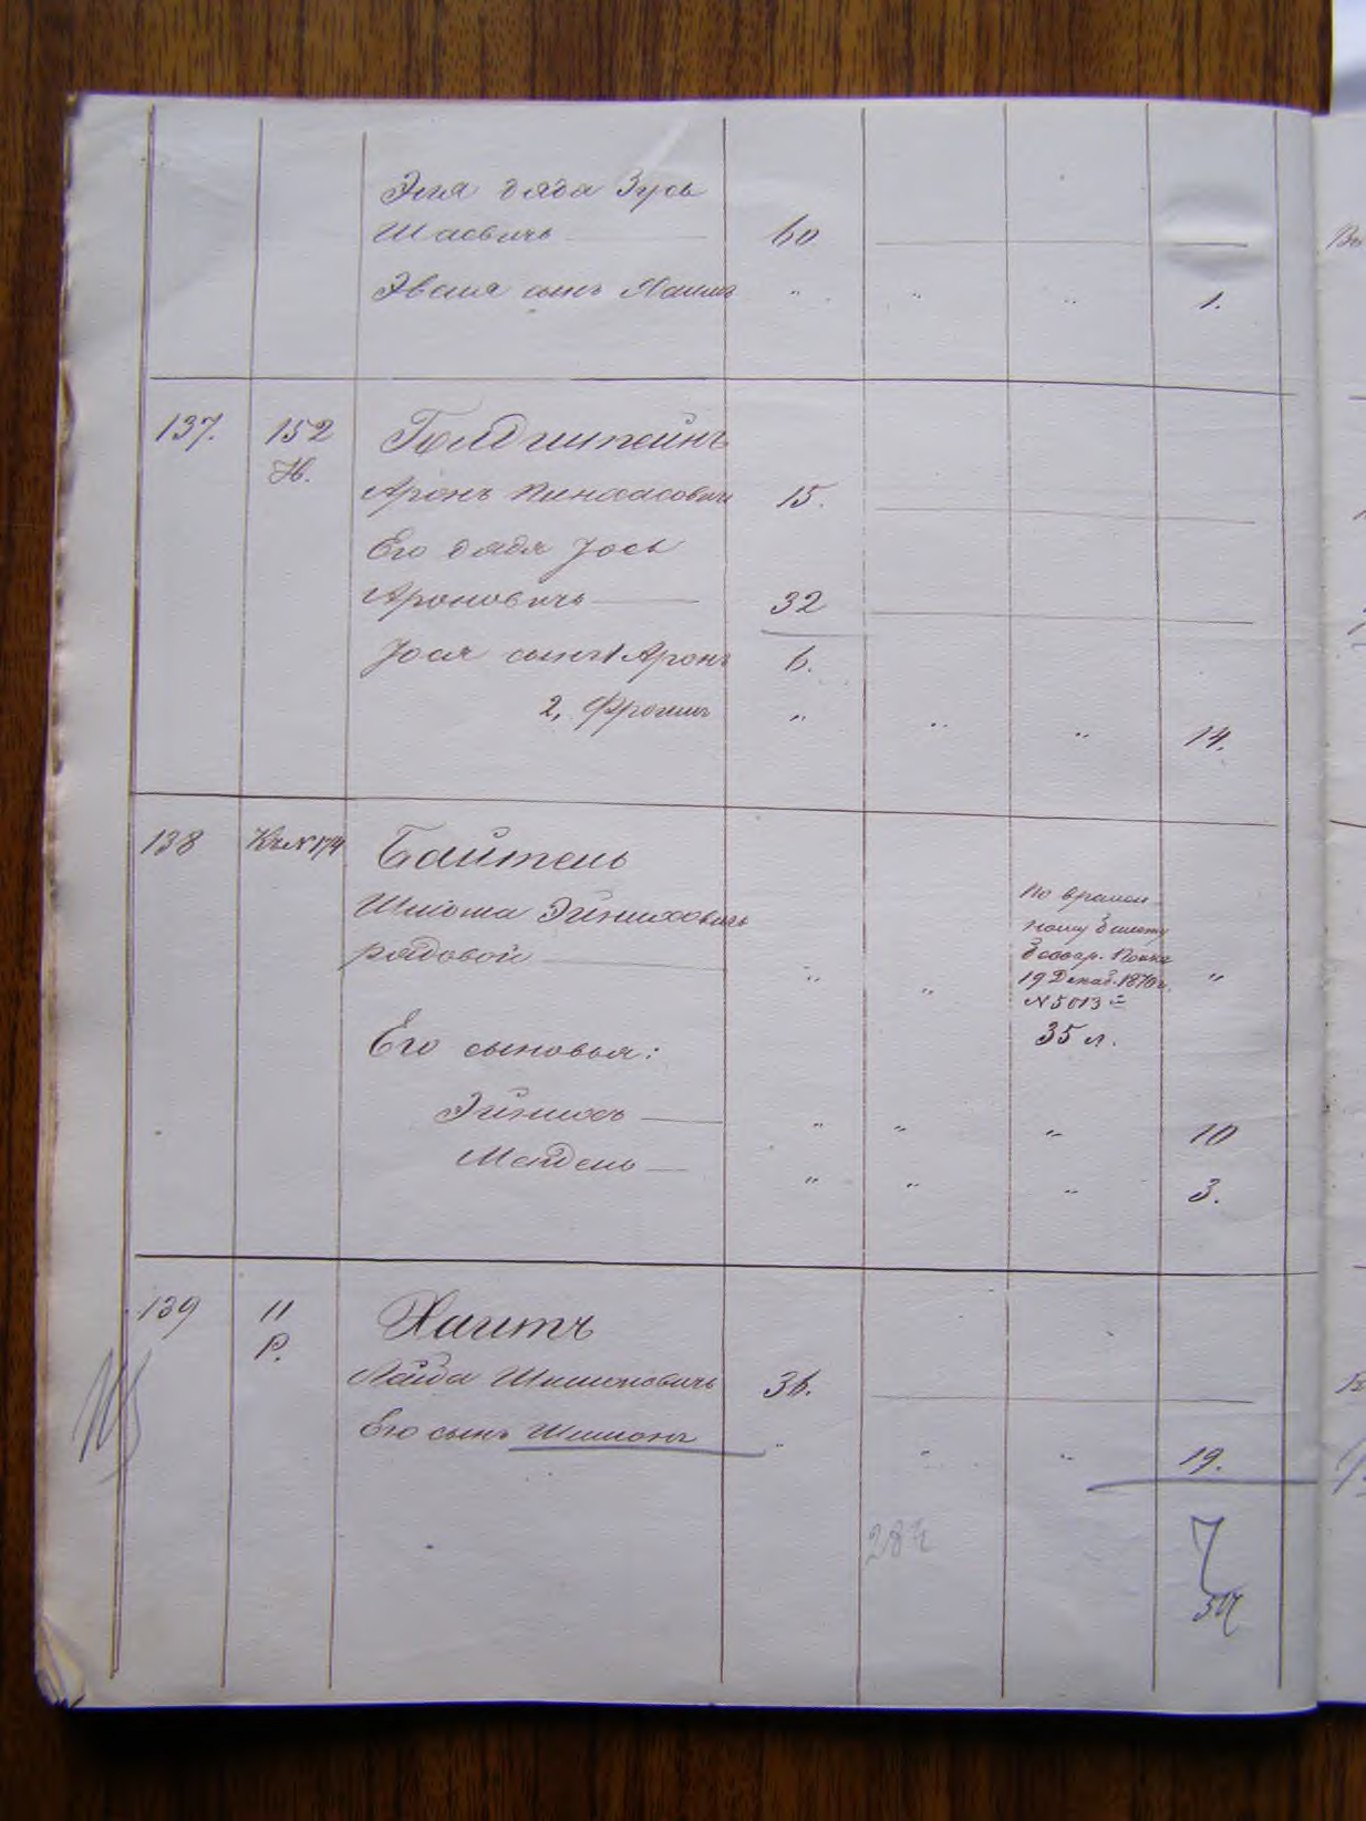 Эля дядя Зусь
Шаевичъ 60
Эвеля сынъ Хаимъ " " " 1.
137. 152 Голдштейнъ
Н.
Аронъ Пинхасовичъ 15.
Его дядя Іось
Ароновичъ 32
Іося сынъ 1 Аронъ 6.
2, Фроимъ " " " 14.
138 Къ № 174 Байтель
Шліома Эйниховичъ
рядовой " " "
По времен
ному билету
19 Декаб. 1870 г.
№ 5013
35 л.
Его сыновья:
Эйнихъ " " " 10
Мендель " " " 3.
139 11 Хаитъ
Р.
Лейба Шимоновичъ 36.
Его сынъ Шимонъ " " " 19.
7